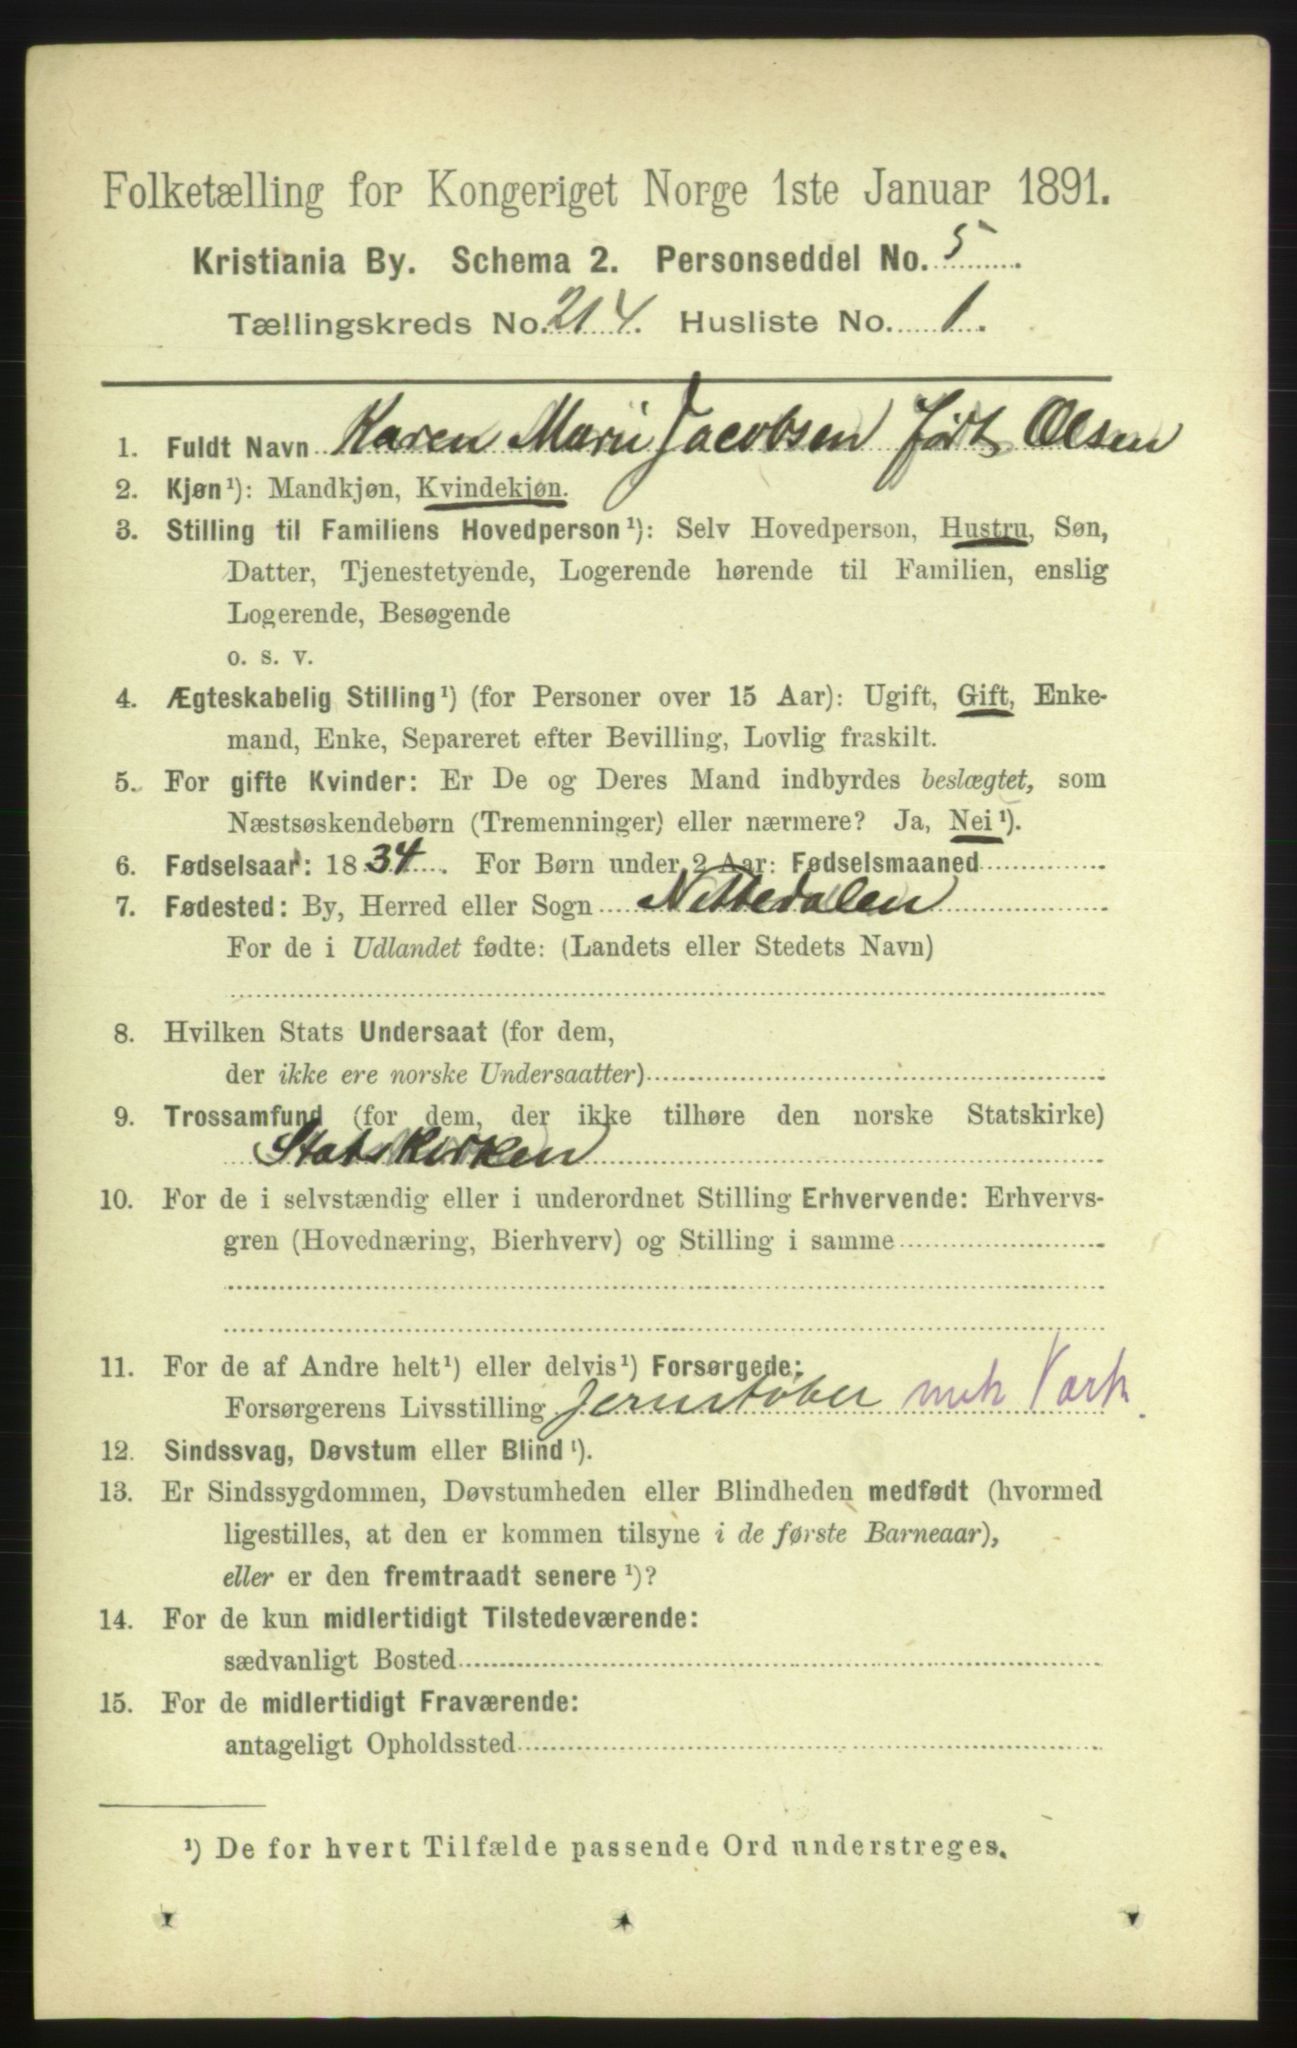 Folketælling for Kongeriget Norge 1ste Januar 1891.
Kristiania By. Schema 2. Personseddel No. 5
Tællingskreds No. 214. Husliste No. 1.
1. Fuldt Navn Karen Marii Jacobsen født Olsen
2. Kjøn¹): Mandkjøn, Kvindekjøn.
3. Stilling til Familiens Hovedperson¹): Selv Hovedperson, Hustru, Søn,
Datter, Tjenestetyende, Logerende hørende til Familien, enslig
Logerende, Besøgende
o. s. v.
4. Ægteskabelig Stilling¹) (for Personer over 15 Aar): Ugift, Gift, Enke-
mand, Enke, Separeret efter Bevilling, Lovlig fraskilt.
5. For gifte Kvinder: Er De og Deres Mand indbyrdes beslægtet, som
Næstsøskendebørn (Tremenninger) eller nærmere? Ja, Nei¹).
6. Fødselsaar: 1834. For Børn under 2 Aar: Fødselsmaaned
7. Fødested: By, Herred eller Sogn Nittedalen
For de i Udlandet fødte: (Landets eller Stedets Navn)
8. Hvilken Stats Undersaat (for dem,
der ikke ere norske Undersaatter)
9. Trossamfund (for dem, der ikke tilhøre den norske Statskirke)
Statskirken
10. For de i selvstændig eller i underordnet Stilling Erhvervende: Erhvervs-
gren (Hovednæring, Bierhverv) og Stilling i samme
11. For de af Andre helt¹) eller delvis¹) Forsørgede:
Forsørgerens Livsstilling Jernstøber mek Værk.
12. Sindssvag, Døvstum eller Blind¹).
13. Er Sindssygdommen, Døvstumheden eller Blindheden medfødt (hvormed
ligestilles, at den er kommen tilsyne i de første Barneaar),
eller er den fremtraadt senere¹)?
14. For de kun midlertidigt Tilstedeværende:
sædvanligt Bosted
15. For de midlertidigt Fraværende:
antageligt Opholdssted
¹) De for hvert Tilfælde passende Ord understreges.